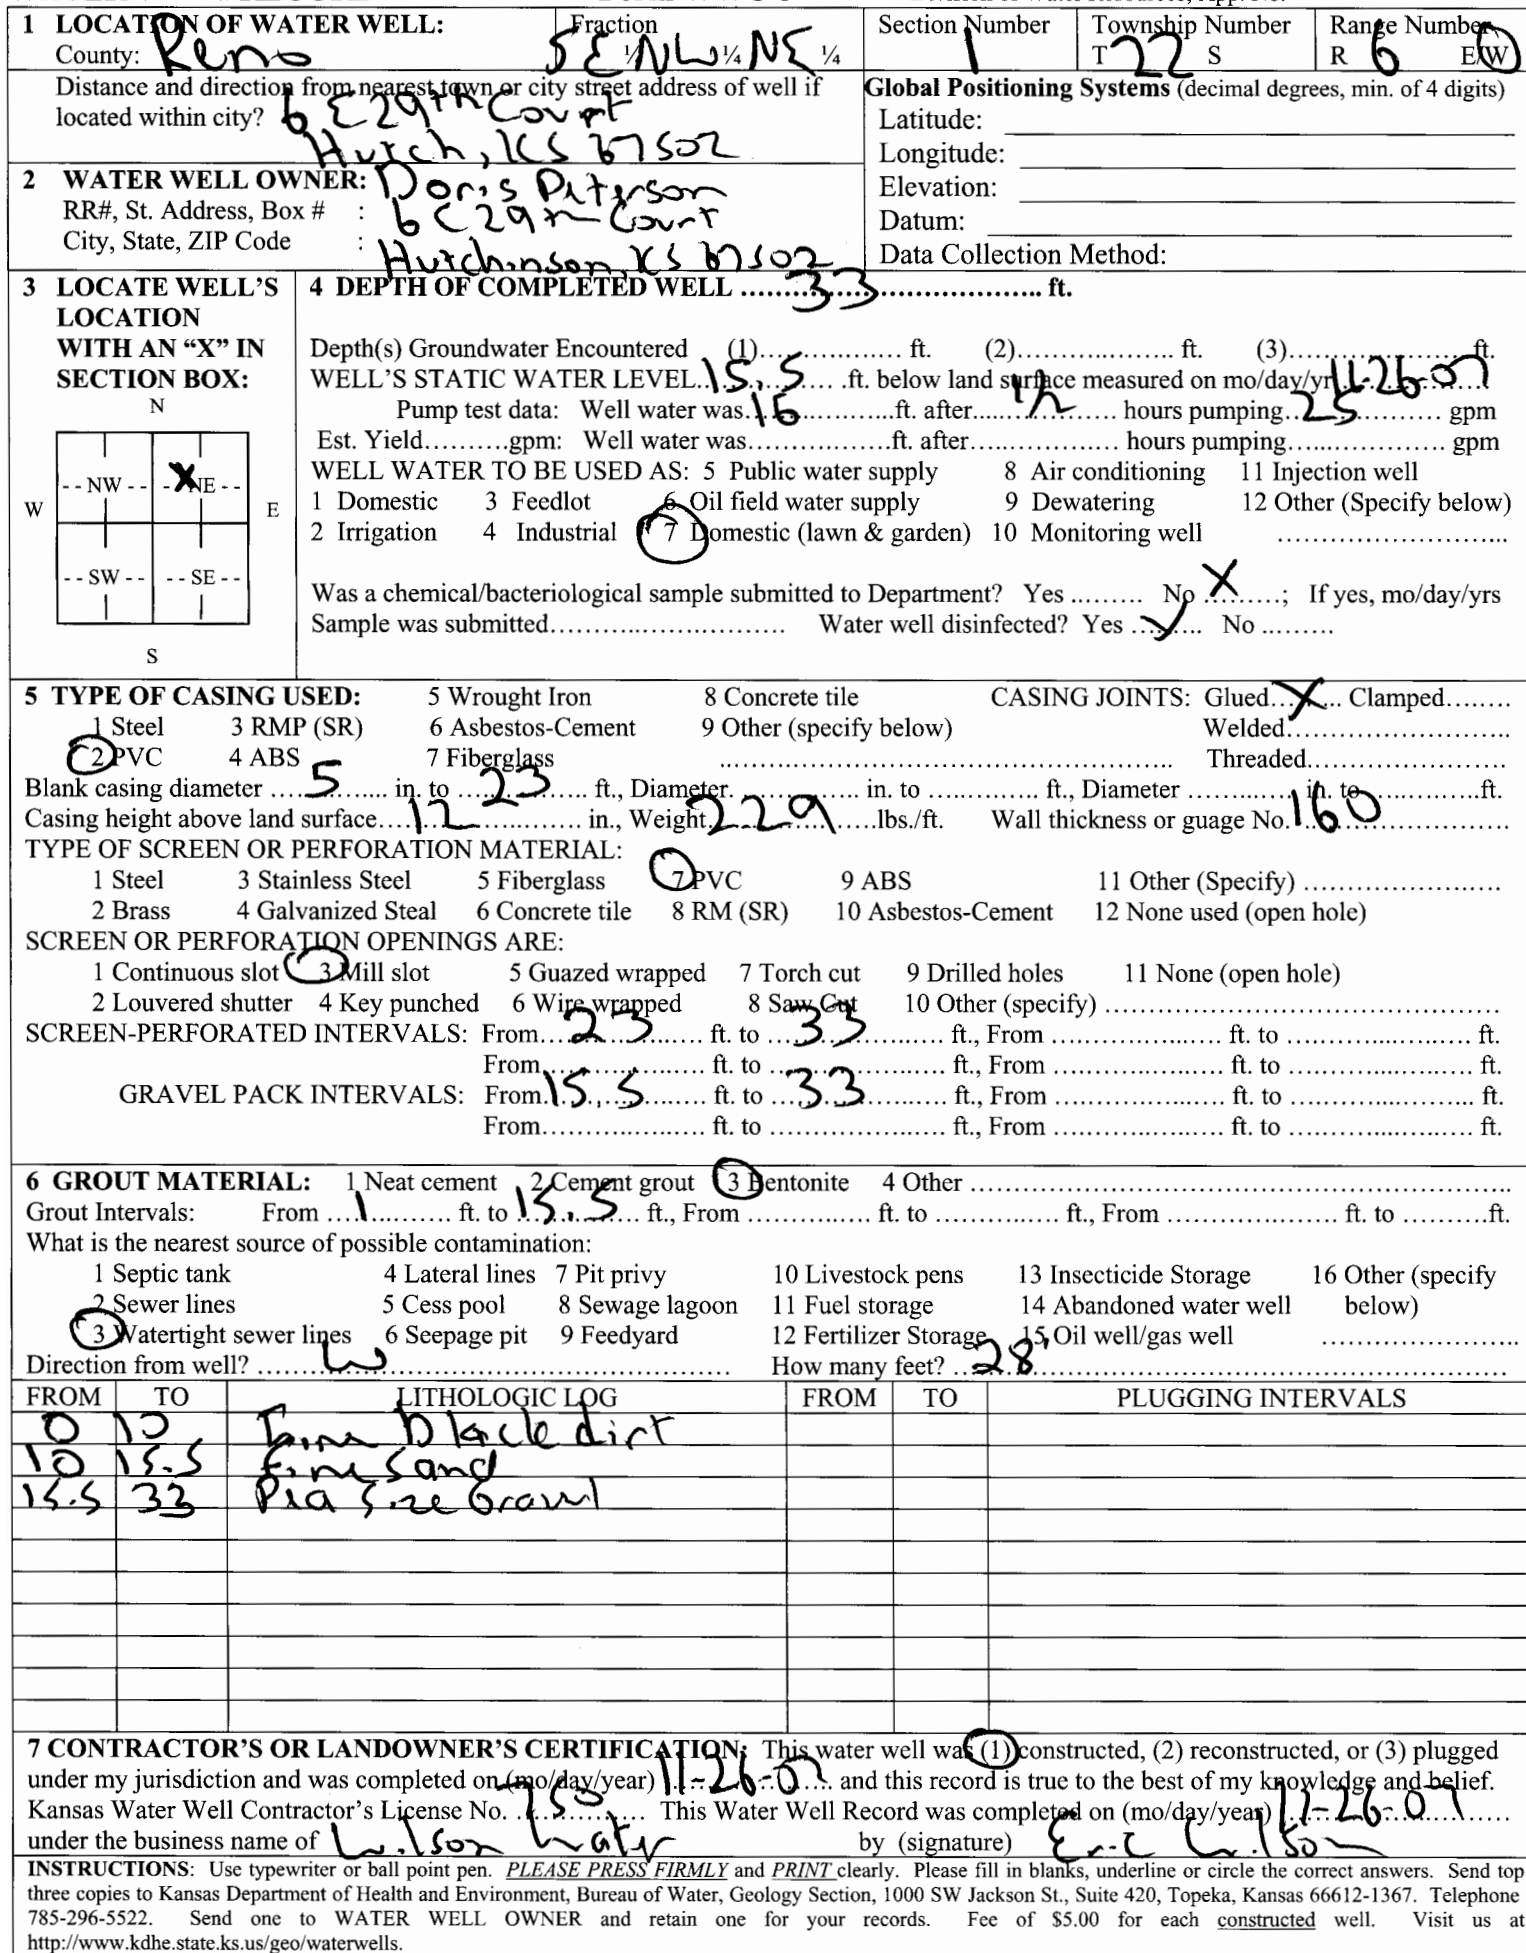 1 LOCATION OF WATER WELL: Fraction Section Number Township Number Range Number
County: Reno SE ¼ NW ¼ NE ¼ 1 T 22 S R 6 E/W
Distance and direction from nearest town or city street address of well if
located within city? 6 E 29th Court
Hutch, KS 67502
Global Positioning Systems (decimal degrees, min. of 4 digits)
Latitude:
Longitude:
Elevation:
Datum:
Data Collection Method:
2 WATER WELL OWNER: Doris Peterson
RR#, St. Address, Box # : 6 E 29th Court
City, State, ZIP Code : Hutchinson, KS 67502
3 LOCATE WELL'S
LOCATION
WITH AN “X” IN
SECTION BOX:
N
--NW-- X --NE--
W E
--SW-- --SE--
S
4 DEPTH OF COMPLETED WELL ......33...... ft.
Depth(s) Groundwater Encountered (1)............ ft. (2)............ ft. (3)............ ft.
WELL'S STATIC WATER LEVEL..15.5.....ft. below land surface measured on mo/day/yr 11-26-07
Pump test data: Well water was 16 ......ft. after... 1/2 ...... hours pumping..25...... gpm
Est. Yield.........gpm: Well water was............ft. after............ hours pumping............ gpm
WELL WATER TO BE USED AS: 5 Public water supply 8 Air conditioning 11 Injection well
1 Domestic 3 Feedlot 6 Oil field water supply 9 Dewatering 12 Other (Specify below)
2 Irrigation 4 Industrial 7 Domestic (lawn & garden) 10 Monitoring well ............
Was a chemical/bacteriological sample submitted to Department? Yes ......... No ...X...; If yes, mo/day/yrs
Sample was submitted............ Water well disinfected? Yes ..✓.. No .........
5 TYPE OF CASING USED: 5 Wrought Iron 8 Concrete tile CASING JOINTS: Glued..X.. Clamped........
1 Steel 3 RMP (SR) 6 Asbestos-Cement 9 Other (specify below) Welded............
2 PVC 4 ABS 7 Fiberglass ............ Threaded............
Blank casing diameter ...5...... in. to ..23...... ft., Diameter............ in. to ............ ft., Diameter ............ in. to ............ft.
Casing height above land surface...12...... in., Weight 229 ......lbs./ft. Wall thickness or guage No. 160
TYPE OF SCREEN OR PERFORATION MATERIAL:
1 Steel 3 Stainless Steel 5 Fiberglass 7 PVC 9 ABS 11 Other (Specify) ............
2 Brass 4 Galvanized Steal 6 Concrete tile 8 RM (SR) 10 Asbestos-Cement 12 None used (open hole)
SCREEN OR PERFORATION OPENINGS ARE:
1 Continuous slot 3 Mill slot 5 Guazed wrapped 7 Torch cut 9 Drilled holes 11 None (open hole)
2 Louvered shutter 4 Key punched 6 Wire wrapped 8 Saw Cut 10 Other (specify) ............
SCREEN-PERFORATED INTERVALS: From...23...... ft. to ...33...... ft., From ............ ft. to ............ ft.
From............ ft. to ............ ft., From ............ ft. to ............ ft.
GRAVEL PACK INTERVALS: From 15.5 ...... ft. to ..33...... ft., From ............ ft. to ............ ft.
From............ ft. to ............ ft., From ............ ft. to ............ ft.
6 GROUT MATERIAL: 1 Neat cement 2 Cement grout 3 Bentonite 4 Other ............
Grout Intervals: From ...1...... ft. to 15.5 ...... ft., From ............ ft. to ............ ft., From ............ ft. to .........ft.
What is the nearest source of possible contamination:
1 Septic tank 4 Lateral lines 7 Pit privy 10 Livestock pens 13 Insecticide Storage 16 Other (specify
2 Sewer lines 5 Cess pool 8 Sewage lagoon 11 Fuel storage 14 Abandoned water well below)
3 Watertight sewer lines 6 Seepage pit 9 Feedyard 12 Fertilizer Storage 15 Oil well/gas well ............
Direction from well? ......W...... How many feet? ..28'......
FROM TO LITHOLOGIC LOG FROM TO PLUGGING INTERVALS
0 10 black dirt
10 15.5 fine Sand
15.5 33 Pea Size Gravel
7 CONTRACTOR'S OR LANDOWNER'S CERTIFICATION: This water well was (1) constructed, (2) reconstructed, or (3) plugged
under my jurisdiction and was completed on (mo/day/year) 11-26-07 and this record is true to the best of my knowledge and belief.
Kansas Water Well Contractor's License No. 750 ...... This Water Well Record was completed on (mo/day/year) 11-26-07
under the business name of Wilson Water by (signature) Eric Wilson
INSTRUCTIONS: Use typewriter or ball point pen. PLEASE PRESS FIRMLY and PRINT clearly. Please fill in blanks, underline or circle the correct answers. Send top
three copies to Kansas Department of Health and Environment, Bureau of Water, Geology Section, 1000 SW Jackson St., Suite 420, Topeka, Kansas 66612-1367. Telephone
785-296-5522. Send one to WATER WELL OWNER and retain one for your records. Fee of $5.00 for each constructed well. Visit us at
http://www.kdhe.state.ks.us/geo/waterwells.